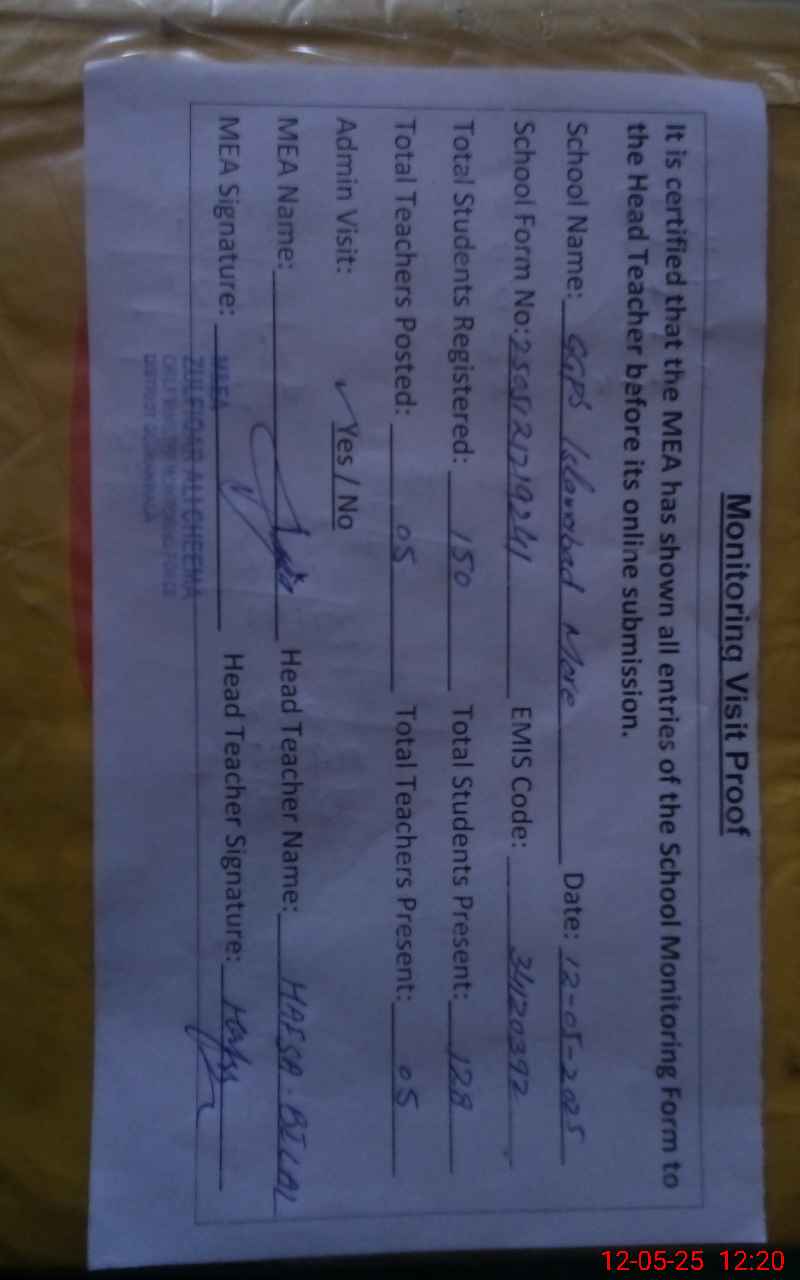 Monitoring Visit Proof
It is certified that the MEA has shown all entries of the School Monitoring Form to
the Head Teacher before its online submission.
School Name: GGPS Islamabad More Date: 12-05-2025
School Form No: EMIS Code: 34120392
Total Students Registered: 150 Total Students Present: 128
Total Teachers Posted: 05 Total Teachers Present: 05
Admin Visit: ✓ Yes / No
MEA Name: Head Teacher Name: HAFSA. BILAL
MEA Signature: Head Teacher Signature: Hafsa
MEA
ZULFIQAR ALI CHEEMA
CHIEF MINISTER MONITORING FORCE
DISTRICT GUJRANWALA
12-05-25 12:20